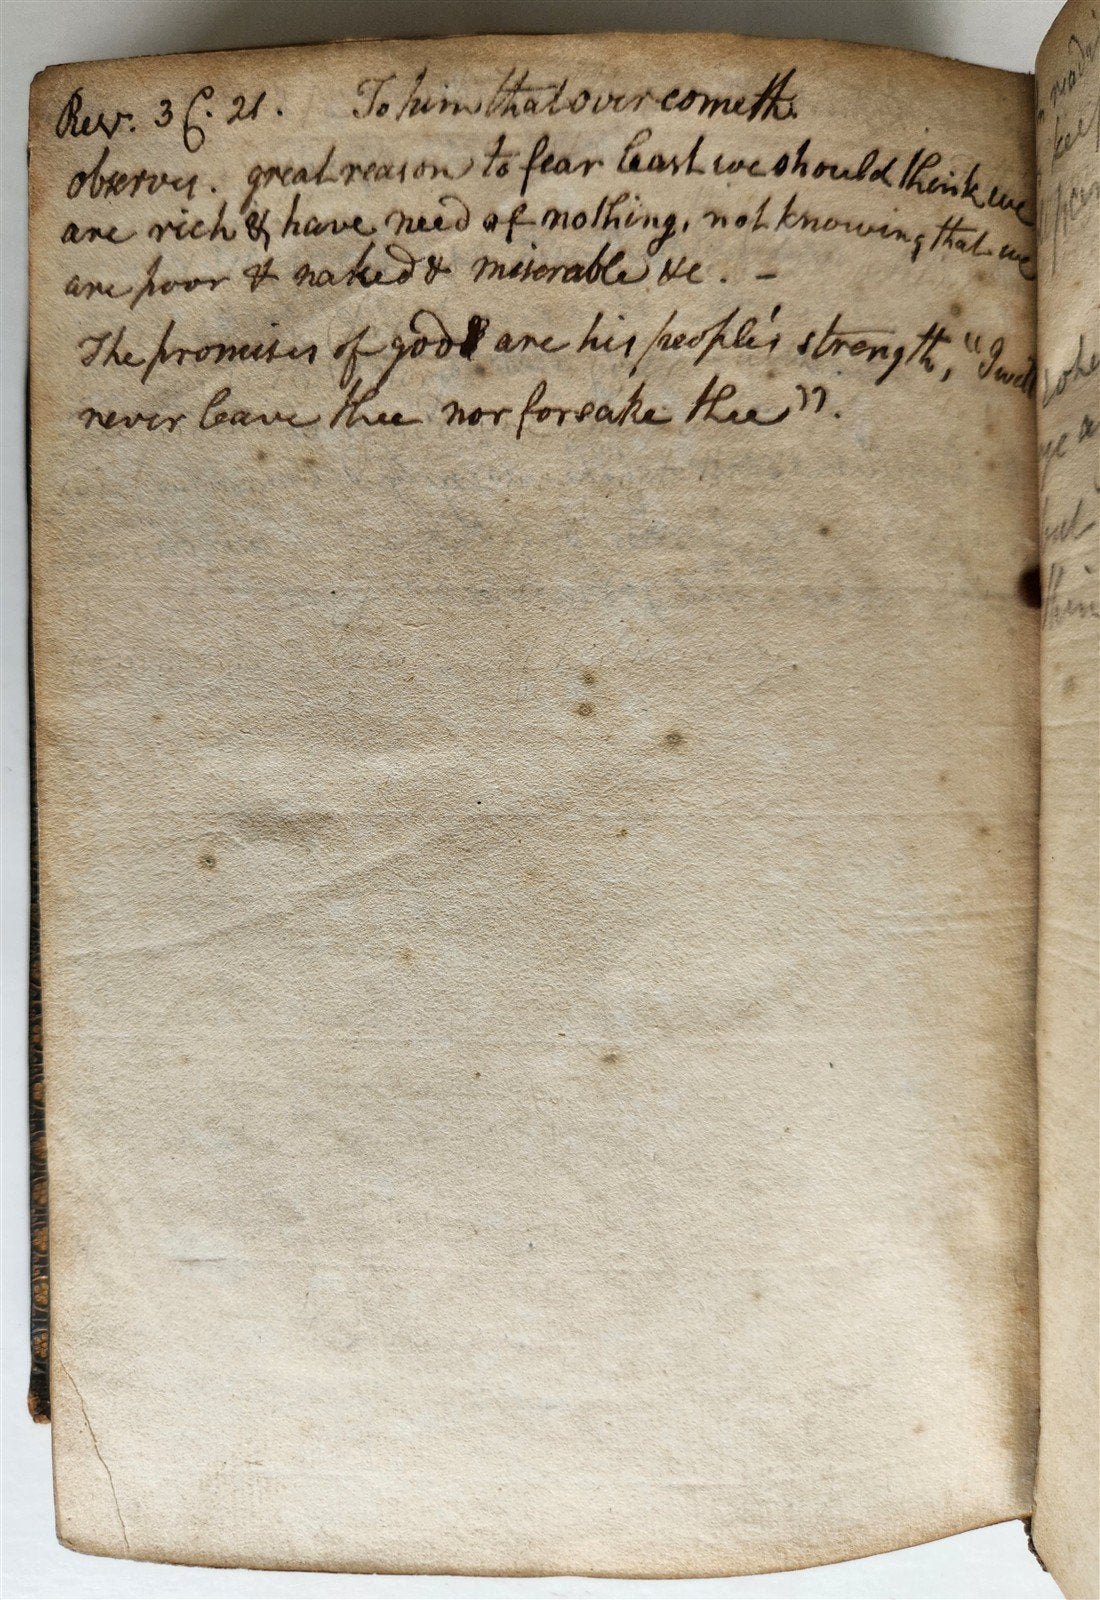 Rev. 3 C. 21. To him that over cometh.
observes. great reason to fear least we should think we
are rich & have need of nothing, not knowing that we
are poor & naked & miserable &c. –
The promises of god are his people's strength, "I will
never leave thee nor forsake thee".